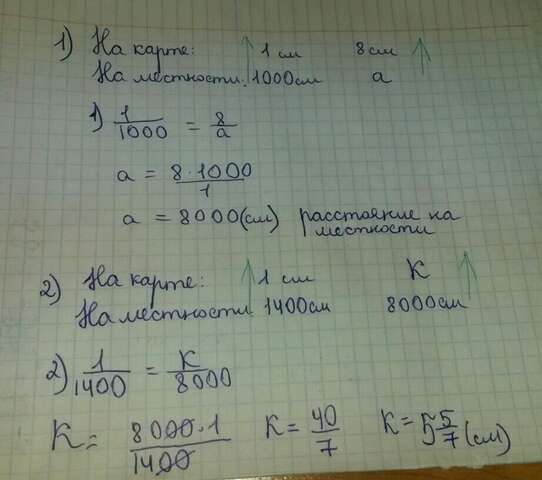 1) На карте: ↑ 1 см 8 см ↑
На местности. 1000 см a
1) 1/1000 = 8/a
a = 8·1000/1
a = 8000 (см) расстояние на
местности
2) На карте: ↑ 1 см К ↑
На местности 1400 см 8000 см
2) 1/1400 = К/8000
К = 8000·1/1400 К = 40/7 К = 5 5/7 (см)